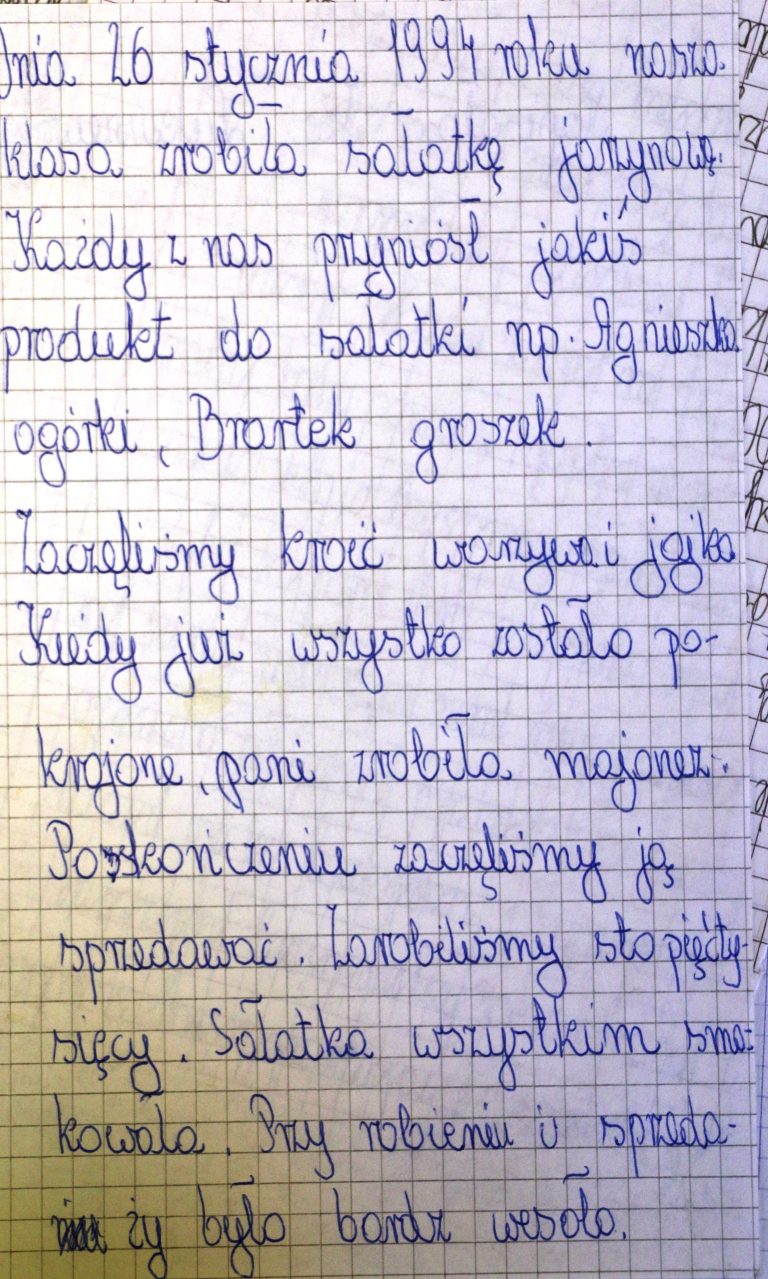 Dnia 26 stycznia 1994 roku nasza
klasa zrobiła sałatkę jarzynową.
Każdy z nas przyniósł jakiś
produkt do sałatki np. Agnieszka
ogórki, Brartek groszek.
Zaczęliśmy kroić warzywa i jajka
Kiedy już wszystko zostało po-
krojone, pani zrobiła majonez.
Po skończeniu zaczęliśmy ją
sprzedawać. Zarobiliśmy sto pięćty-
sięcy. Sałatka wszystkim sma-
kowała. Przy robieniu i sprzeda-
ży było bardz wesoło.